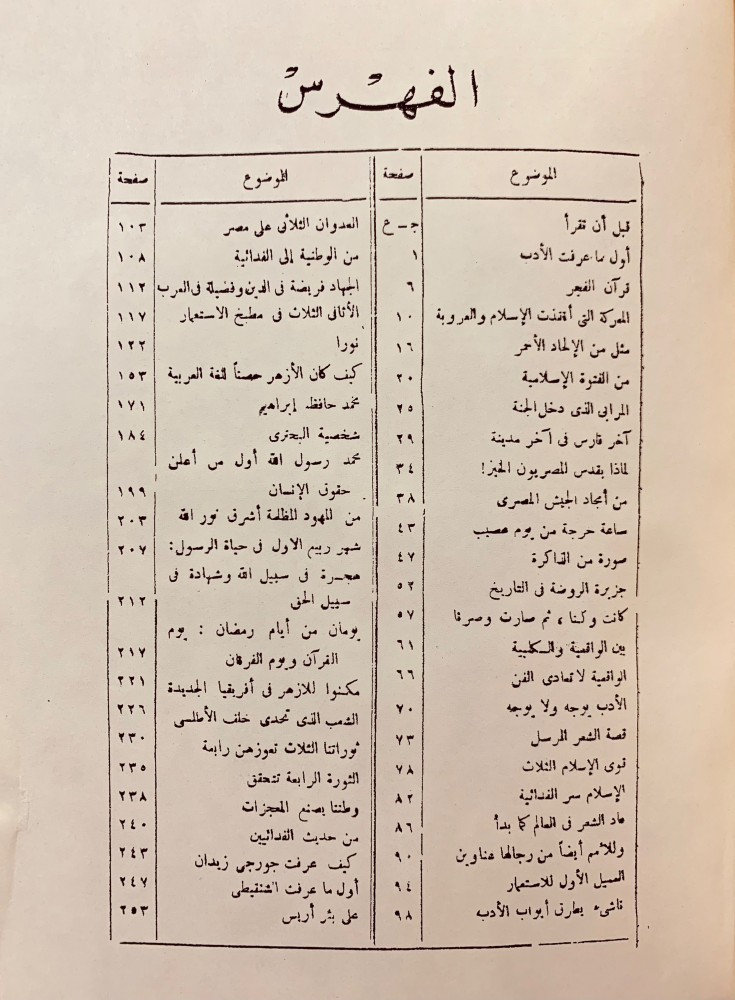 الفهرس
الموضوع صفحة
قبل أن تقرأ جـ ـ ع
أول ما عرفت الأدب ١
قرآن الفجر ٦
المعركة التى أنقذت الإسلام والعروبة ١٠
مثل من الإلحاد الأحمر ١٦
من الفتوة الإسلامية ٢٠
المرابى الذى دخل الجنة ٢٥
آخر فارس فى آخر مدينة ٢٩
لماذا يقدس المصريون الخبز! ٣٤
من أمجاد الجيش المصرى ٣٨
ساعة حرجة من يوم عصيب ٤٣
صورة من الذاكرة ٤٧
جزيرة الروضة فى التاريخ ٥٢
كانت وكنا ، ثم صارت وصرنا ٥٧
بين الواقعية والكلبية ٦١
الواقعية لا تعادى الفن ٦٦
الأدب يوجه ولا يوجه ٧٠
قصة الشعر المرسل ٧٣
قوى الإسلام الثلاث ٧٨
الإسلام سر الفدائية ٨٢
عاد الشعر فى العالم كما بدأ ٨٦
وللأمم أيضاً من رجالها عناوين ٩٠
العميل الأول للاستعمار ٩٤
ناشىء يطرق أبواب الأدب ٩٨
الموضوع صفحة
العدوان الثلاثى على مصر ١٠٣
من الوطنية إلى الفدائية ١٠٨
الجهاد فريضة فى الدين وفضيلة فى العرب ١١٢
الأثافى الثلاث فى مطبخ الاستعمار ١١٧
نورا ١٢٢
كيف كان الأزهر حصناً للغة العربية ١٥٣
محمد حافظ إبراهيم ١٧١
شخصية البحترى ١٨٤
محمد رسول الله أول من أعلن
حقوق الإنسان ١٩٩
من المهود المظلمة أشرق نور الله ٢٠٣
شهر ربيع الاول فى حياة الرسول: ٢٠٧
هجرة فى سبيل الله وشهادة فى
سبيل الحق ٢١٢
يومان من أيام رمضان : يوم
القرآن ويوم الفرقان ٢١٧
مكنوا للازهر فى أفريقيا الجديدة ٢٢١
الشعب الذى تحدى خلف الأطلسى ٢٢٦
ثوراتنا الثلاث تعوزهن رابعة ٢٣٠
الثورة الرابعة تتحقق ٢٣٥
وطننا يصنع المعجزات ٢٣٨
من حديث الفدائيين ٢٤٠
كيف عرفت جورجى زيدان ٢٤٣
أول ما عرفت الشنقيطى ٢٤٧
على بئر أريس ٢٥٣